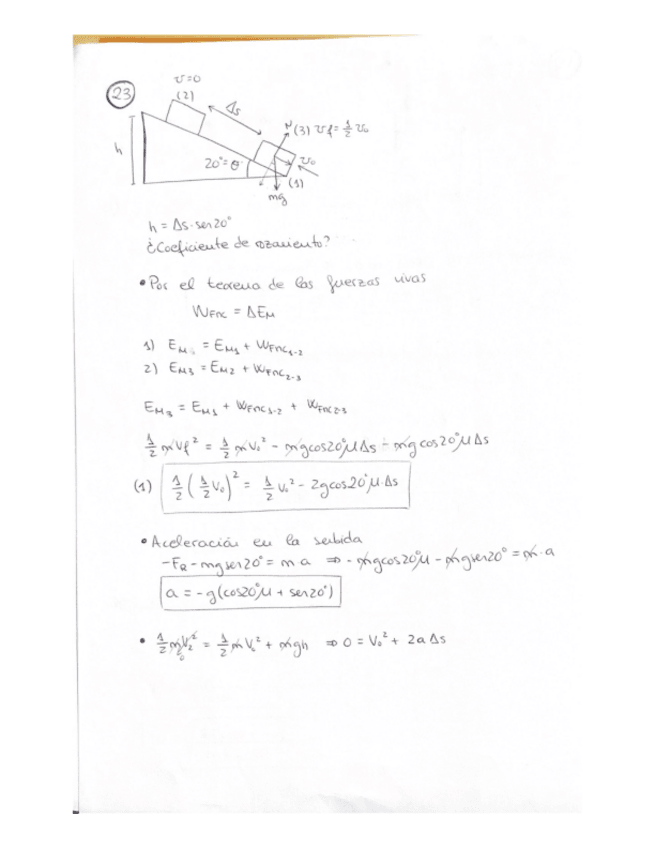 23
v=0
(2)
Δs
N (3) vf = 1/2 v₀
h
20°= θ
v₀
(1)
mg
h = Δs·sen20°
¿Coeficiente de rozamiento?
• Por el teorema de las fuerzas vivas
W_Fnc = ΔE_M
1) E_M₂ = E_M₁ + W_Fnc₁₋₂
2) E_M3 = E_M2 + W_Fnc₂₋₃
E_M₃ = E_M₁ + W_Fnc₁₋₂ + W_Fnc₂₋₃
1/2 m vf² = 1/2 m v₀² - mgcos20°μΔs - mgcos20°μΔs
(1) 1/2 (1/2 v₀)² = 1/2 v₀² - 2gcos20°μ·Δs
• Aceleración en la subida
-F_R - mgsen20° = m a ⇒ - mgcos20°μ - mgsen20° = m·a
a = -g(cos20°μ + sen20°)
• 1/2 m v₂² = 1/2 m v₀² + mgh ⇒ 0 = v₀² + 2aΔs
0